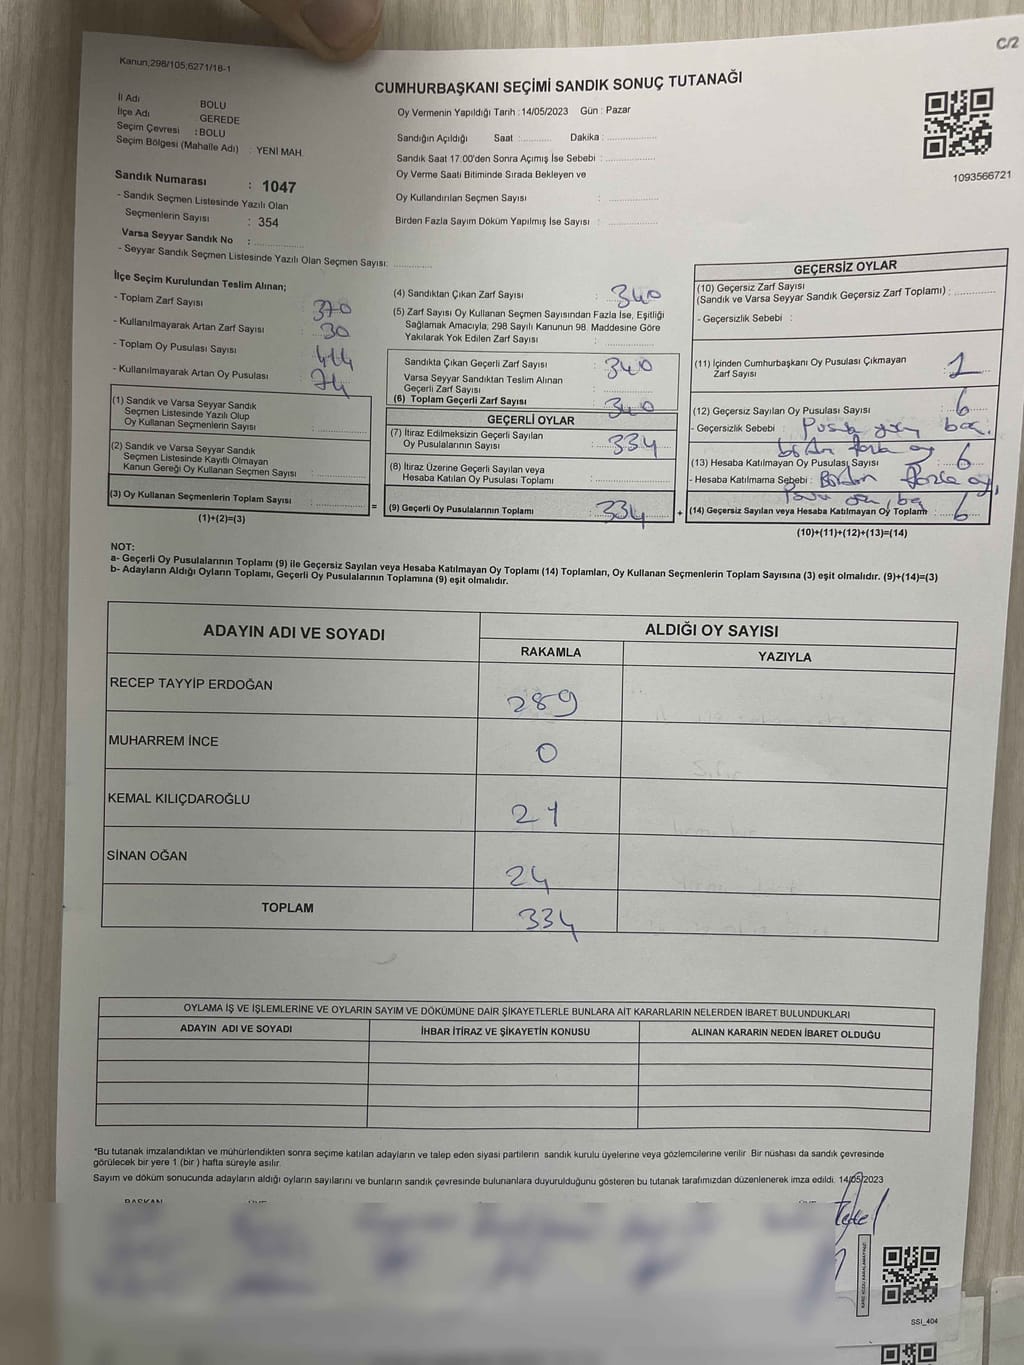 C/2
Kanun;298/105;6271/18-1
CUMHURBAŞKANI SEÇİMİ SANDIK SONUÇ TUTANAĞI
İl Adı BOLU
İlçe Adı GEREDE
Seçim Çevresi : BOLU
Seçim Bölgesi (Mahalle Adı) : YENİ MAH.
Sandık Numarası : 1047
- Sandık Seçmen Listesinde Yazılı Olan
Seçmenlerin Sayısı : 354
Varsa Seyyar Sandık No : ...............
- Seyyar Sandık Seçmen Listesinde Yazılı Olan Seçmen Sayısı: ............
Oy Vermenin Yapıldığı Tarih : 14/05/2023 Gün : Pazar
Sandığın Açıldığı Saat :.......... Dakika :...............
Sandık Saat 17:00'den Sonra Açımış İse Sebebi :...............
Oy Verme Saati Bitiminde Sırada Bekleyen ve
Oy Kullandırılan Seçmen Sayısı : ...............
Birden Fazla Sayım Döküm Yapılmış İse Sayısı : ...............
1093566721
İlçe Seçim Kurulundan Teslim Alınan;
- Toplam Zarf Sayısı : 370
- Kullanılmayarak Artan Zarf Sayısı : 30
- Toplam Oy Pusulası Sayısı : 414
- Kullanılmayarak Artan Oy Pusulası : 74
(1) Sandık ve Varsa Seyyar Sandık
Seçmen Listesinde Yazılı Olup
Oy Kullanan Seçmenlerin Sayısı : ...............
(2) Sandık ve Varsa Seyyar Sandık
Seçmen Listesinde Kayıtlı Olmayan
Kanun Gereği Oy Kullanan Seçmen Sayısı : ...............
(3) Oy Kullanan Seçmenlerin Toplam Sayısı : ............... =
(1)+(2)=(3)
(4) Sandıktan Çıkan Zarf Sayısı : 340
(5) Zarf Sayısı Oy Kullanan Seçmen Sayısından Fazla İse, Eşitliği
Sağlamak Amacıyla, 298 Sayılı Kanunun 98. Maddesine Göre
Yakılarak Yok Edilen Zarf Sayısı : ...............
Sandıkta Çıkan Geçerli Zarf Sayısı : 340
Varsa Seyyar Sandıktan Teslim Alınan
Geçerli Zarf Sayısı : ...............
(6) Toplam Geçerli Zarf Sayısı : 340
GEÇERLİ OYLAR
(7) İtiraz Edilmeksizin Geçerli Sayılan
Oy Pusulalarının Sayısı : 334
(8) İtiraz Üzerine Geçerli Sayılan veya
Hesaba Katılan Oy Pusulası Toplamı : ...............
(9) Geçerli Oy Pusulalarının Toplamı : 334 +
GEÇERSİZ OYLAR
(10) Geçersiz Zarf Sayısı
(Sandık ve Varsa Seyyar Sandık Geçersiz Zarf Toplamı) : ............
- Geçersizlik Sebebi :
(11) İçinden Cumhurbaşkanı Oy Pusulası Çıkmayan
Zarf Sayısı : 1
(12) Geçersiz Sayılan Oy Pusulası Sayısı : 6
- Geçersizlik Sebebi :
(13) Hesaba Katılmayan Oy Pusulası Sayısı : 6
- Hesaba Katılmama Sebebi :
(14) Geçersiz Sayılan veya Hesaba Katılmayan Oy Toplamı : 6
(10)+(11)+(12)+(13)=(14)
NOT:
a- Geçerli Oy Pusulalarının Toplamı (9) ile Geçersiz Sayılan veya Hesaba Katılmayan Oy Toplamı (14) Toplamları, Oy Kullanan Seçmenlerin Toplam Sayısına (3) eşit olmalıdır. (9)+(14)=(3)
b- Adayların Aldığı Oyların Toplamı, Geçerli Oy Pusulalarının Toplamına (9) eşit olmalıdır.
ADAYIN ADI VE SOYADI ALDIĞI OY SAYISI
RAKAMLA YAZIYLA
RECEP TAYYİP ERDOĞAN 289
MUHARREM İNCE 0
KEMAL KILIÇDAROĞLU 21
SİNAN OĞAN 24
TOPLAM 334
OYLAMA İŞ VE İŞLEMLERİNE VE OYLARIN SAYIM VE DÖKÜMÜNE DAİR ŞİKAYETLERLE BUNLARA AİT KARARLARIN NELERDEN İBARET BULUNDUKLARI
ADAYIN ADI VE SOYADI İHBAR İTİRAZ VE ŞİKAYETİN KONUSU ALINAN KARARIN NEDEN İBARET OLDUĞU
*Bu tutanak imzalandıktan ve mühürlendikten sonra seçime katılan adayların ve talep eden siyasi partilerin sandık kurulu üyelerine veya gözlemcilerine verilir Bir nüshası da sandık çevresinde
görülecek bir yere 1 (bir ) hafta süreyle asılır.
Sayım ve döküm sonucunda adayların aldığı oyların sayılarını ve bunların sandık çevresinde bulunanlara duyurulduğunu gösteren bu tutanak tarafımızdan düzenlenerek imza edildi. 14/05/2023
BAŞKAN
SSI_404